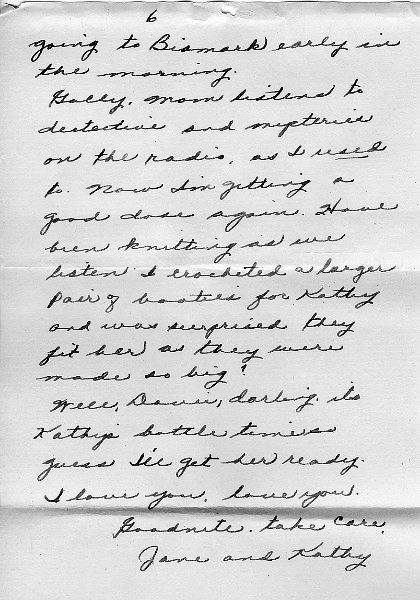 6
going to Bismark early in
the morning.
Golly, Mom listens to
destective and mysteries
on the radio, as I used
to. Now I'm getting a
good dose again. Have
been knitting as we
listen I crocheted a larger
pair of booties for Kathy
and was surprised they
fit her as they were
made so big!
Well, Davie, darling, its
Kathy's bottle time so
guess I'll get her ready.
I love you, love you.
Goodnite. take care.
Jane and Kathy